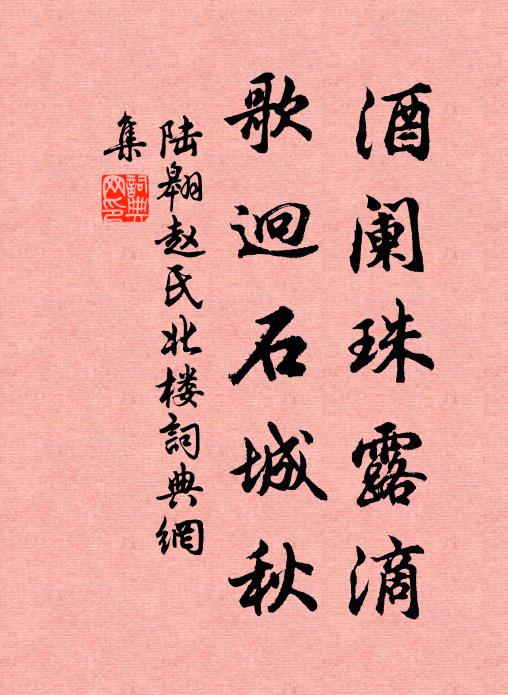 酒阑珠露滴
歌迥石城秋
陆翱赵氏北楼詞典網
集
詞典网印